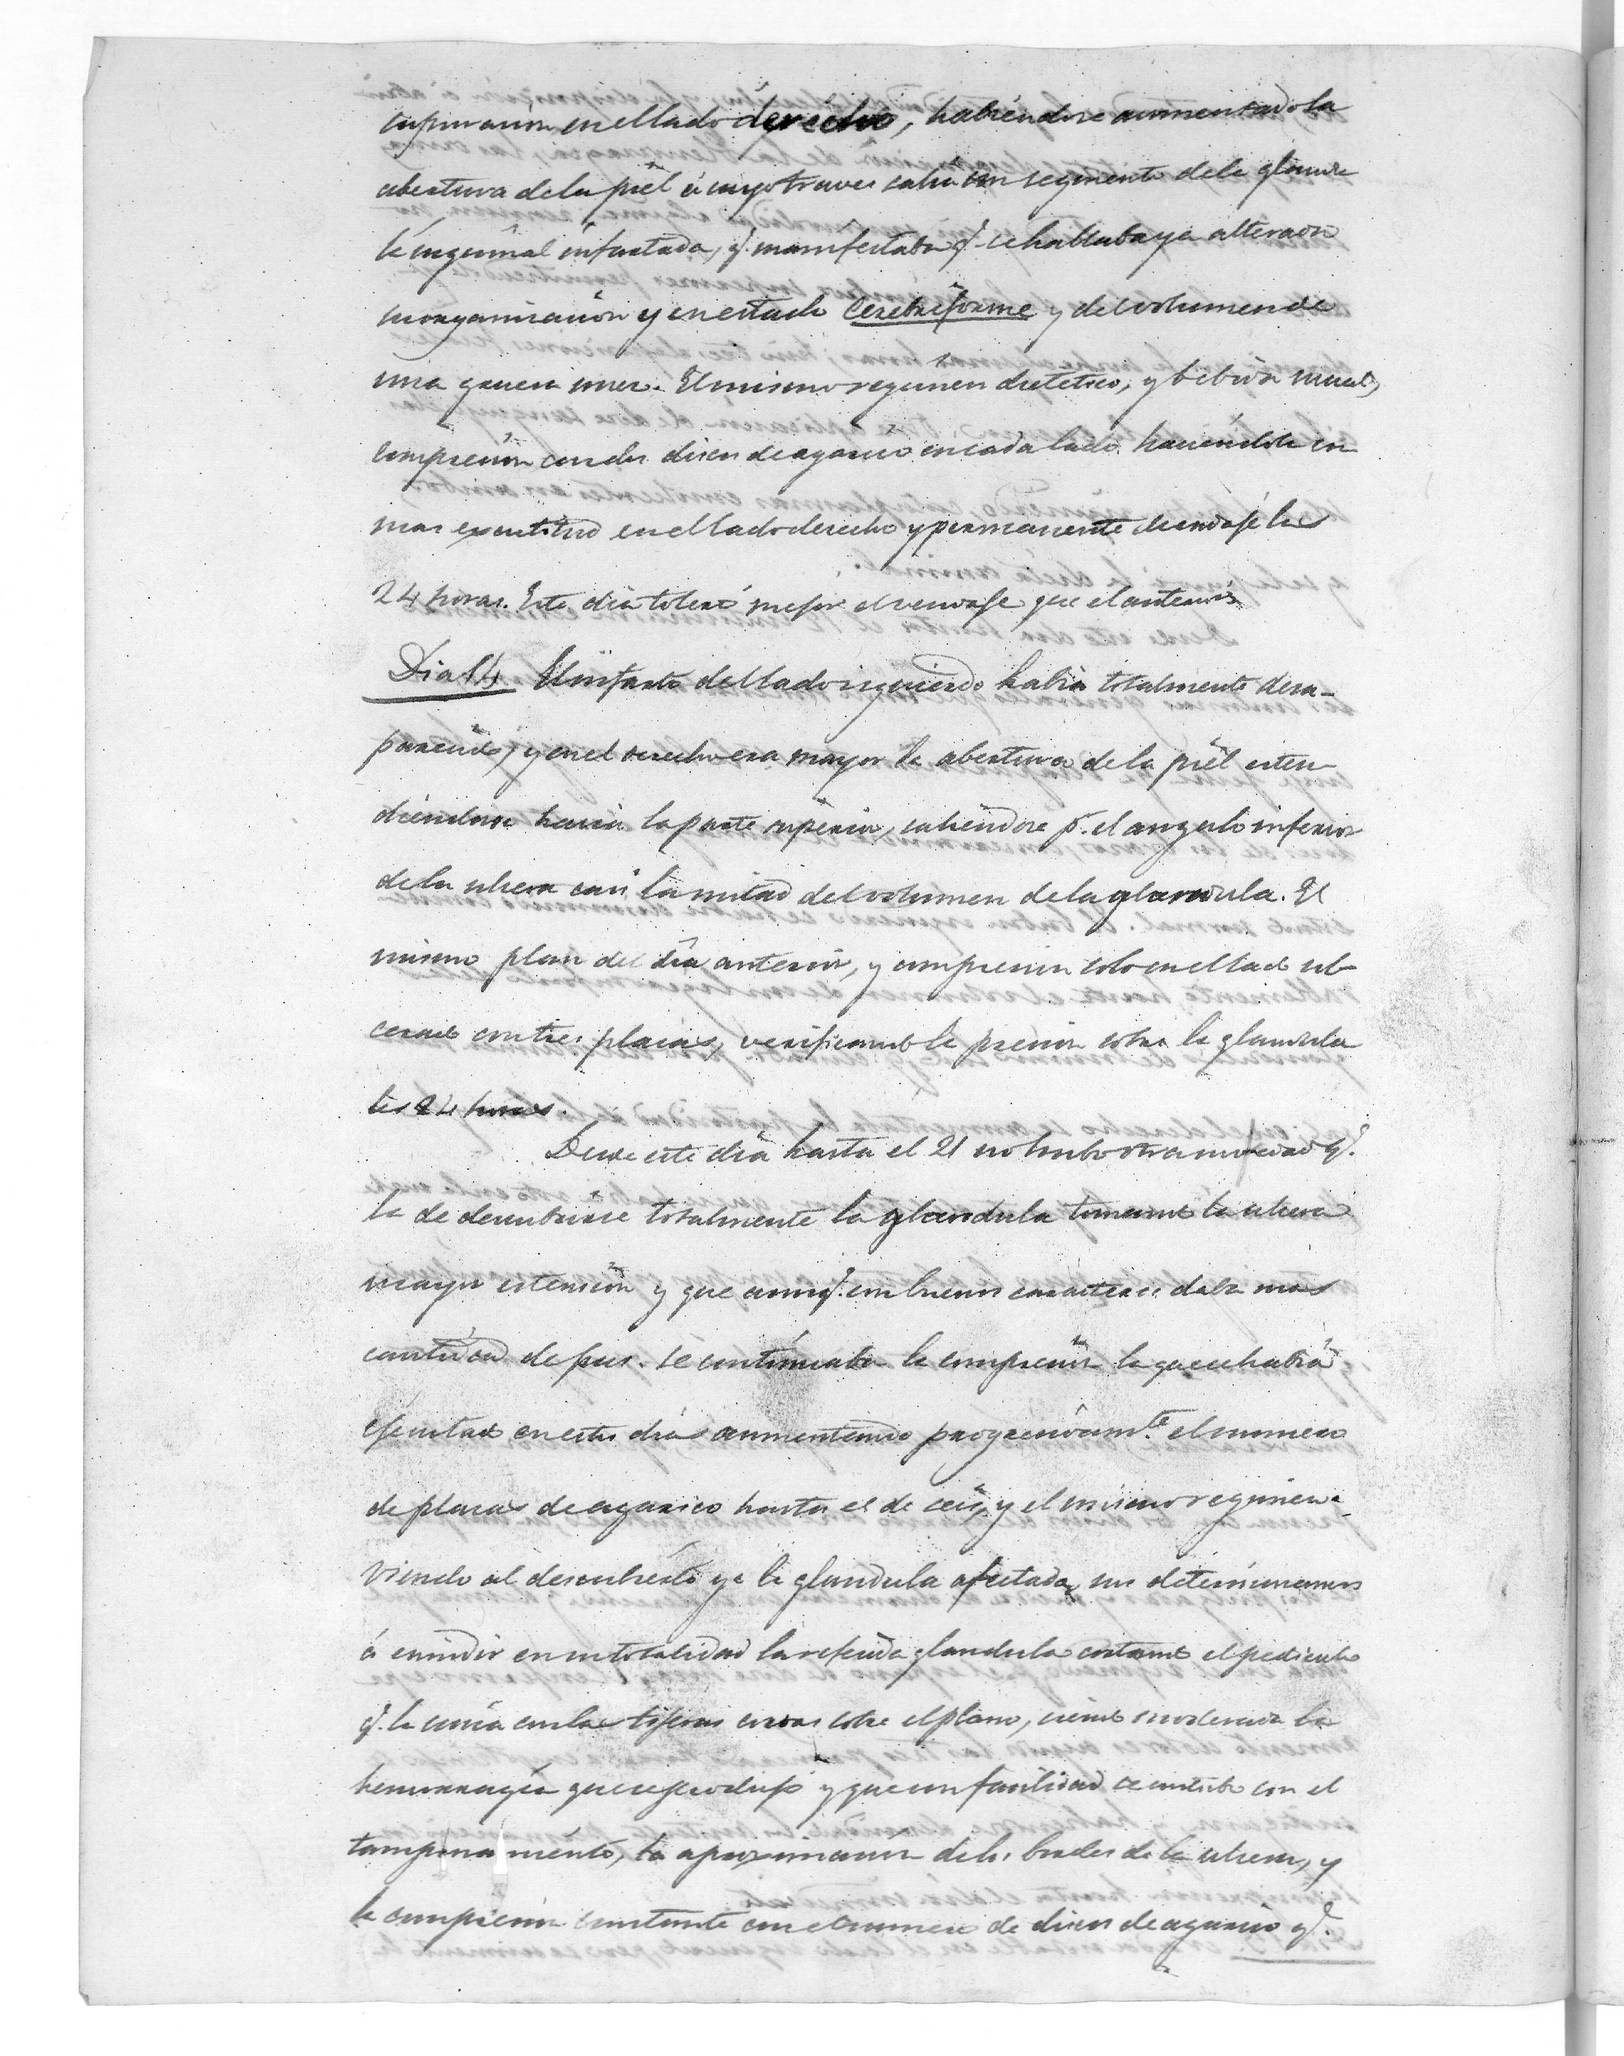 supuracion en el lado derecho, habiendose aumentado la
abertura de la piel á cuyo traves salia un segmento dela glandu
la inguinal infartada, q.e manifestaba q.e se hallaba ya alterada
su organizacion y en estado Cerebriforme y del volumen de
una gruesa nuez. El mismo regimen dietetico, y bebida usual,
compresion con dos discos de agarico en cada lado haciendola con
mas exactitud en el lado derecho y permanente el vendaje las
24 horas. Este dia toleró mejor el vendaje que el anterior
Dia 14 El infarto del lado izquierdo habia totalmente desa-
parecido, y en el derecho era mayor la abertura de la piel esten-
diendose hacia la parte superior, saliendose p.r el angulo inferior
de la ulcera casi la mitad del volumen de la glandula. El
mismo plan del dia anterior, y compresion solo en el lado ul-
cerado con tres placas, verificando la presion sobre la glandula
las 24 horas.
Desde este dia hasta el 21 no hubo otra novedad q.e
la de descubrirse totalmente la glandula tomando la ulcera
mayor estension y que aunq.e con buenos caracteres daba mas
cantidad de pus. se continuaba la compresion la que se habia
ejecutado en estos dias aumentando progresivam.te el numero
de placas de agarico hasta el de seis, y el mismo regimen.
Viendo al descubierto ya la glandula afectada, nos determinamos
á escindir en su totalidad la referida glandula cortando el pediculo
q.e la unia con las tijeras curvas sobre el plano, siendo moderada la
hemorragia que se produjo y que con facilidad se contubo con el
tamponamiento, la aproximacion de los bordes de la ulcera, y
la compresion constante con el numero de discos de agarico q.e